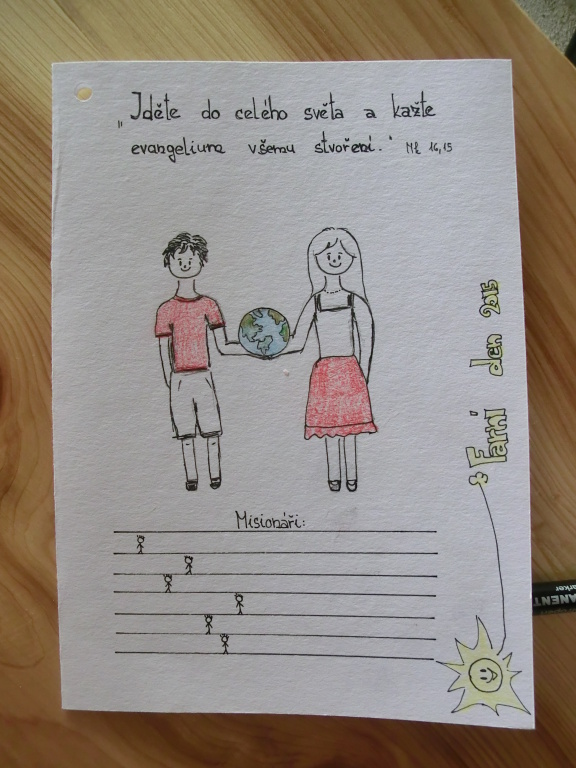 „Jděte do celého světa a kažte
evangelium všemu stvoření." Mk 16,15
Farní den 2015
Misionáři:
ANENT
arker